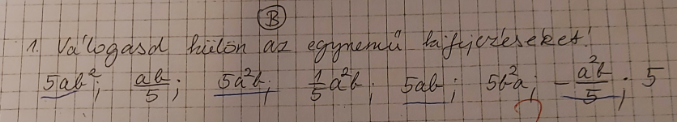 B
1. Válogasd külön az egynemű kifejezéseket!
5ab²; ab/5; 5a²b; 1/5 a²b; 5ab; 5b²a; -a²b/5; 5